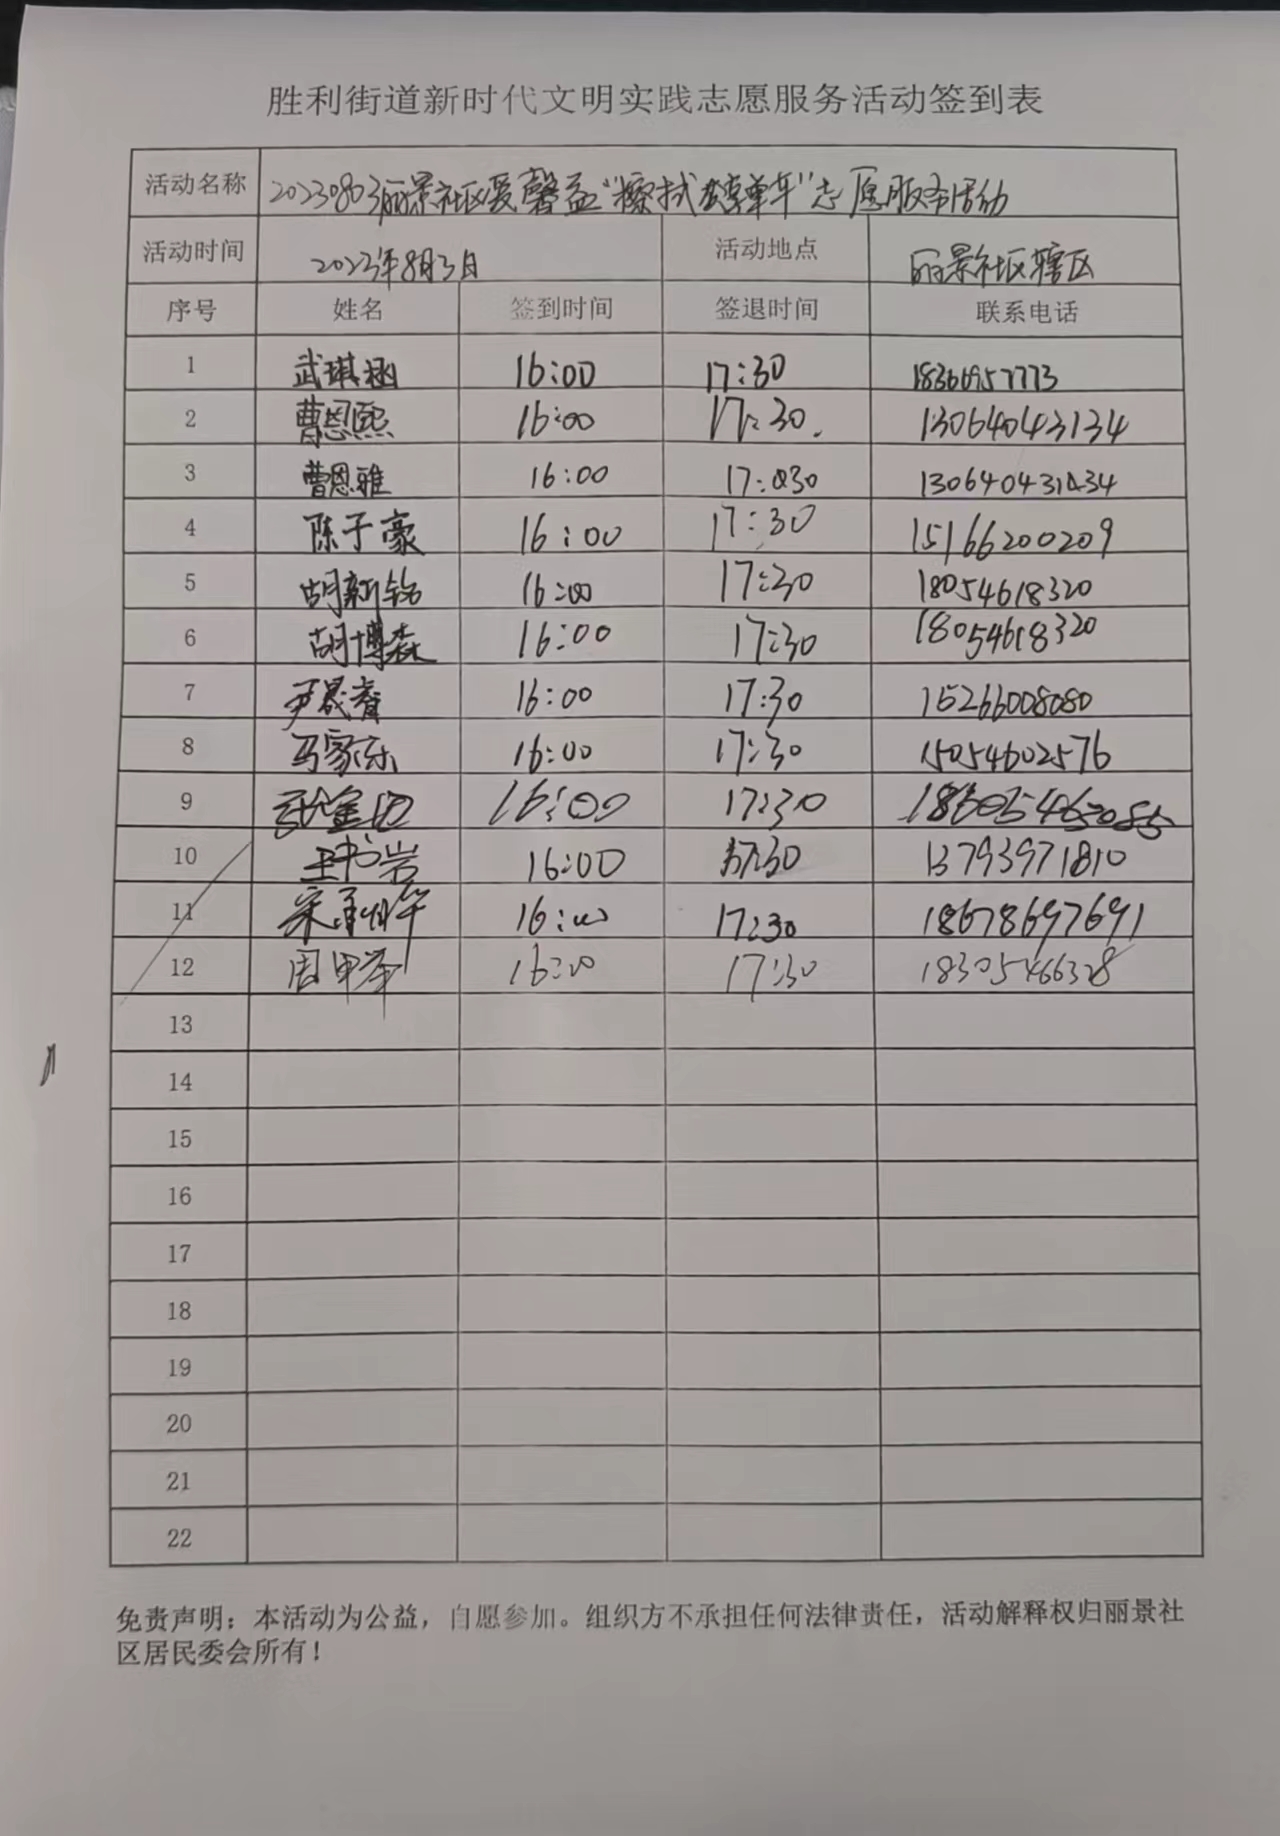 胜利街道新时代文明实践志愿服务活动签到表
活动名称 20230803丽景社区爱馨益“擦拭共享单车”志愿服务活动
活动时间 2023年8月3日 活动地点 丽景社区辖区
序号 姓名 签到时间 签退时间 联系电话
1 武琪涵 16:00 17:30 18366957773
2 曹恩熙 16:00 17:30. 13064043134
3 曹恩雅 16:00 17:30 13064043134
4 陈子豪 16:00 17:30 15166200209
5 胡新铭 16:00 17:30 18054618320
6 胡博森 16:00 17:30 18054618320
7 尹晟睿 16:00 17:30 15266008080
8 马家乐 16:00 17:30 15054602576
9 16:00 17:30
10 王书岩 16:00 17:30 13793971810
11 16:00 17:30 18678697691
12 16:00 17:30 18305466328
13
14
15
16
17
18
19
20
21
22
免责声明：本活动为公益，自愿参加。组织方不承担任何法律责任，活动解释权归丽景社
区居民委会所有！